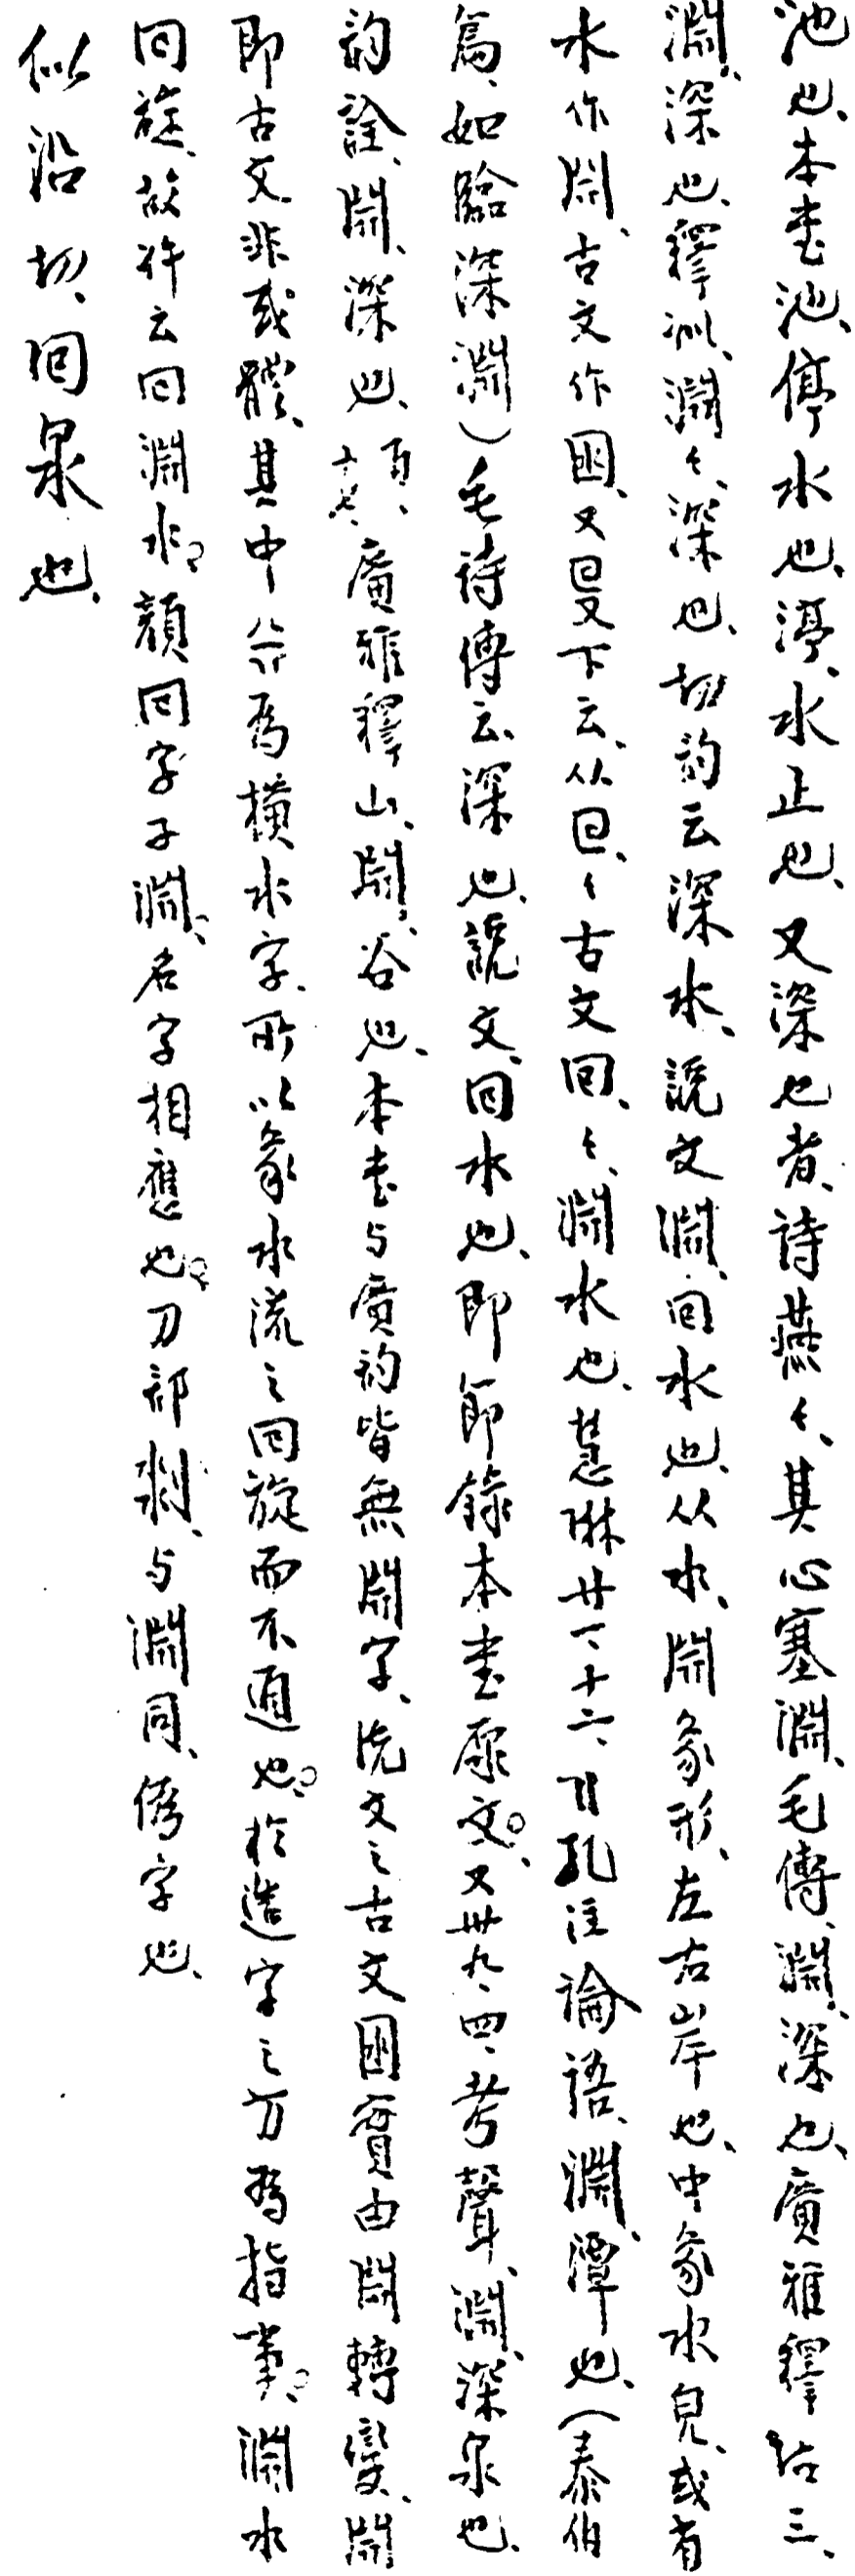 池也、本書池、停水也、渟、水止也、又深也者、詩燕〻、其心塞淵、毛傳、淵、深也、廣雅釋詁三、
淵、深也、釋訓、淵〻、深也、切韵云深水、說文淵、回水也、从水、𣶒象形、左右岸也、中象水皃、或省
水作𣶒、古文作囦、又𠬸下云、从囘、〻古文回、〻、淵水也、慧琳廿一、十六、引孔注論語、淵、潭也、（泰伯
篇、如臨深淵）毛詩傳云、深也、說文、回水也、即節錄本書原文、又卅九、四、考聲、淵、深泉也、
韵詮、𣶒、深也、頁、十七、廣雅釋山、𣶒、谷也、本書与廣韵皆無𣶒字、說文之古文囦實由𣶒轉變、𣶒
即古文非或體、其中𠔁為橫水字、所以象水流之回旋而不通也、於造字之方為指事、淵水
回旋、故許云回淵水、顏回字子淵、名字相應也、刀部剡、与淵同、偽字也、
似沿切、回泉也、